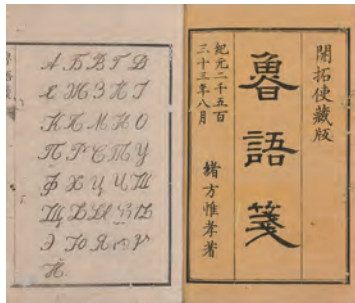 開拓使藏版
魯語箋
紀元二千五百
三十三年八月
緒方惟孝著
А Б В Г Д
Е Ж З И І
К Л М Н О
П Р С Т У
Ф Х Ц Ч Ш
Щ Ъ Ы Ь Ѣ
Э Ю Я Ѳ Ѵ
Й.